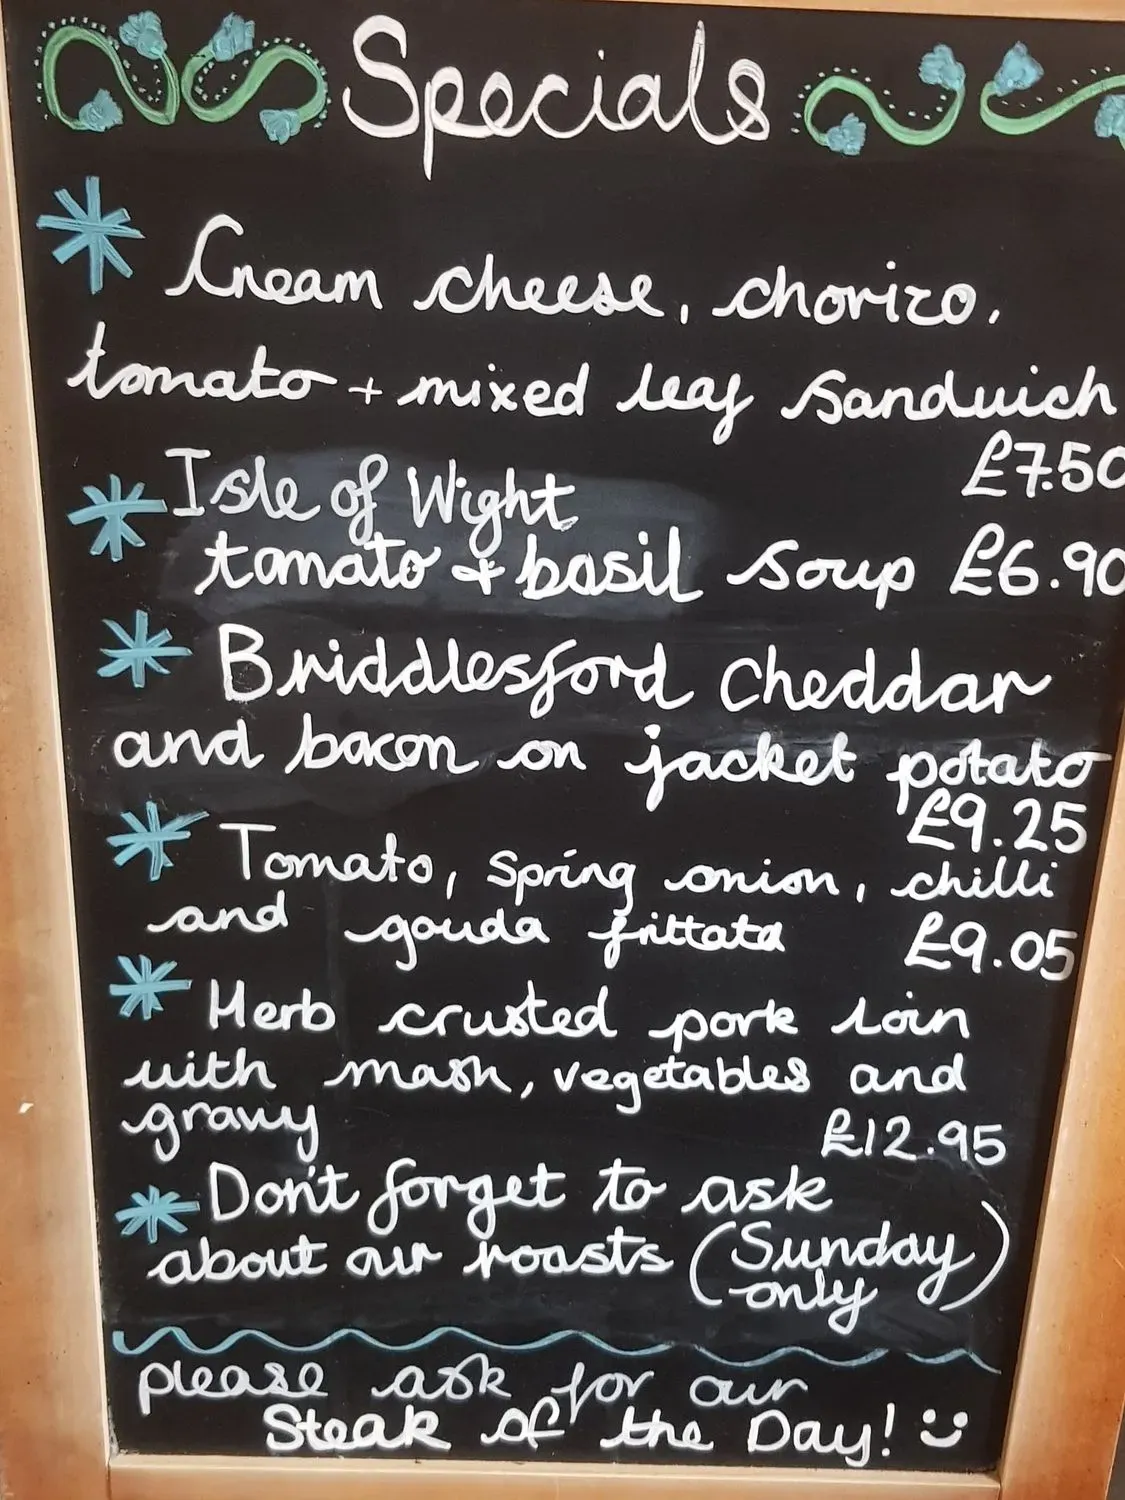 Specials
Cream cheese, chorizo,
tomato + mixed leaf sandwich
£7.50
Isle of Wight
tomato + basil soup £6.90
Briddlesford Cheddar
and bacon on jacket potato
£9.25
Tomato, spring onion, chilli
and gouda frittata £9.05
Herb crusted pork loin
with mash, vegetables and
gravy £12.95
Don't forget to ask
about our roasts (Sunday
only)
please ask for our
Steak of the Day!